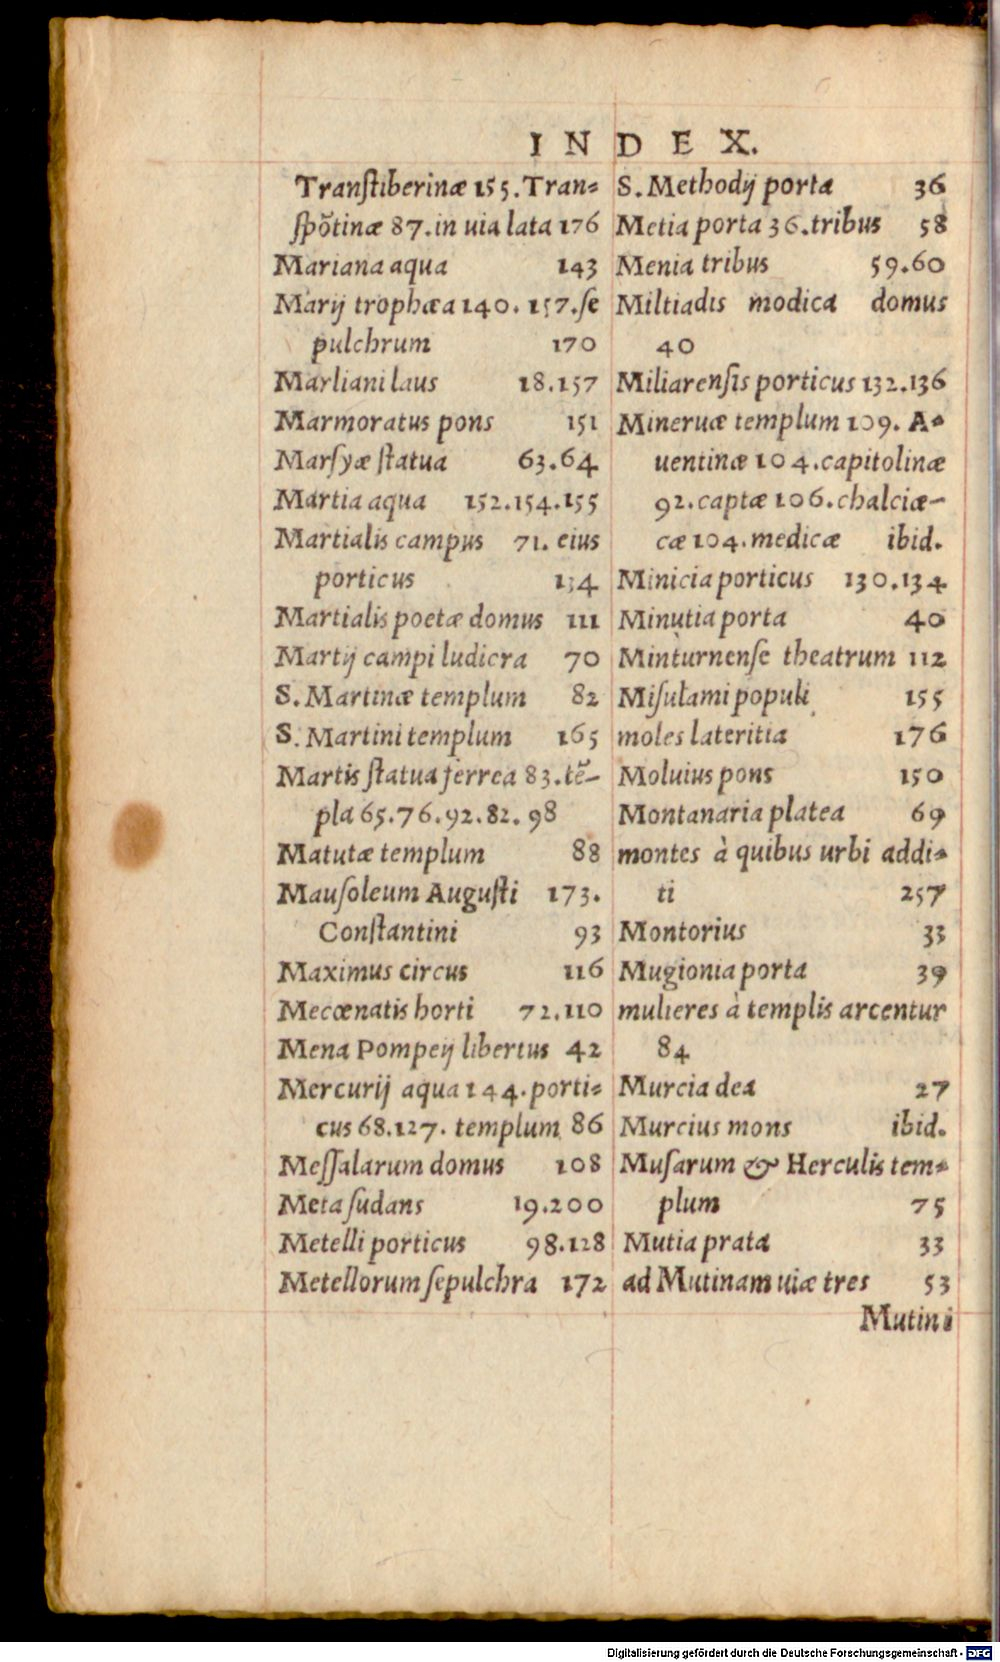 INDEX.
Tranſtiberinæ 155. Tran-
ſpõtinæ 87. in uia lata 176
Mariana aqua 143
Marij trophæa 140. 157. ſe
pulchrum 170
Marliani laus 18.157
Marmoratus pons 151
Marſyæ ſtatua 63.64
Martia aqua 152.154.155
Martialis campus 71. eius
porticus 134
Martialis poetæ domus 111
Martij campi ludicra 70
S. Martinæ templum 82
S. Martini templum 165
Martis ſtatua ferrea 83. tẽ-
pla 65.76.92.82.98
Matutæ templum 88
Mauſoleum Auguſti 173.
Conſtantini 93
Maximus circus 116
Mecœnatis horti 72.110
Mena Pompeij libertus 42
Mercurij aqua 144. porti-
cus 68.127. templum 86
Meſſalarum domus 108
Meta ſudans 19.200
Metelli porticus 98.128
Metellorum ſepulchra 172
S. Methodij porta 36
Metia porta 36. tribus 58
Menia tribus 59.60
Miltiadis modica domus
40
Miliarenſis porticus 132.136
Mineruæ templum 109. A-
uentinæ 104. capitolinæ
92. captæ 106. chalciæ-
cæ 104. medicæ ibid.
Minicia porticus 130.134
Minutia porta 40
Minturnenſe theatrum 112
Miſulami populi 155
moles lateritia 176
Moluius pons 150
Montanaria platea 69
montes à quibus urbi addi-
ti 257
Montorius 33
Mugionia porta 39
mulieres à templis arcentur
84
Murcia dea 27
Murcius mons ibid.
Muſarum & Herculis tem-
plum 75
Mutia prata 33
ad Mutinam uiæ tres 53
Mutini
Digitalisierung gefördert durch die Deutsche Forschungsgemeinschaft - DFG